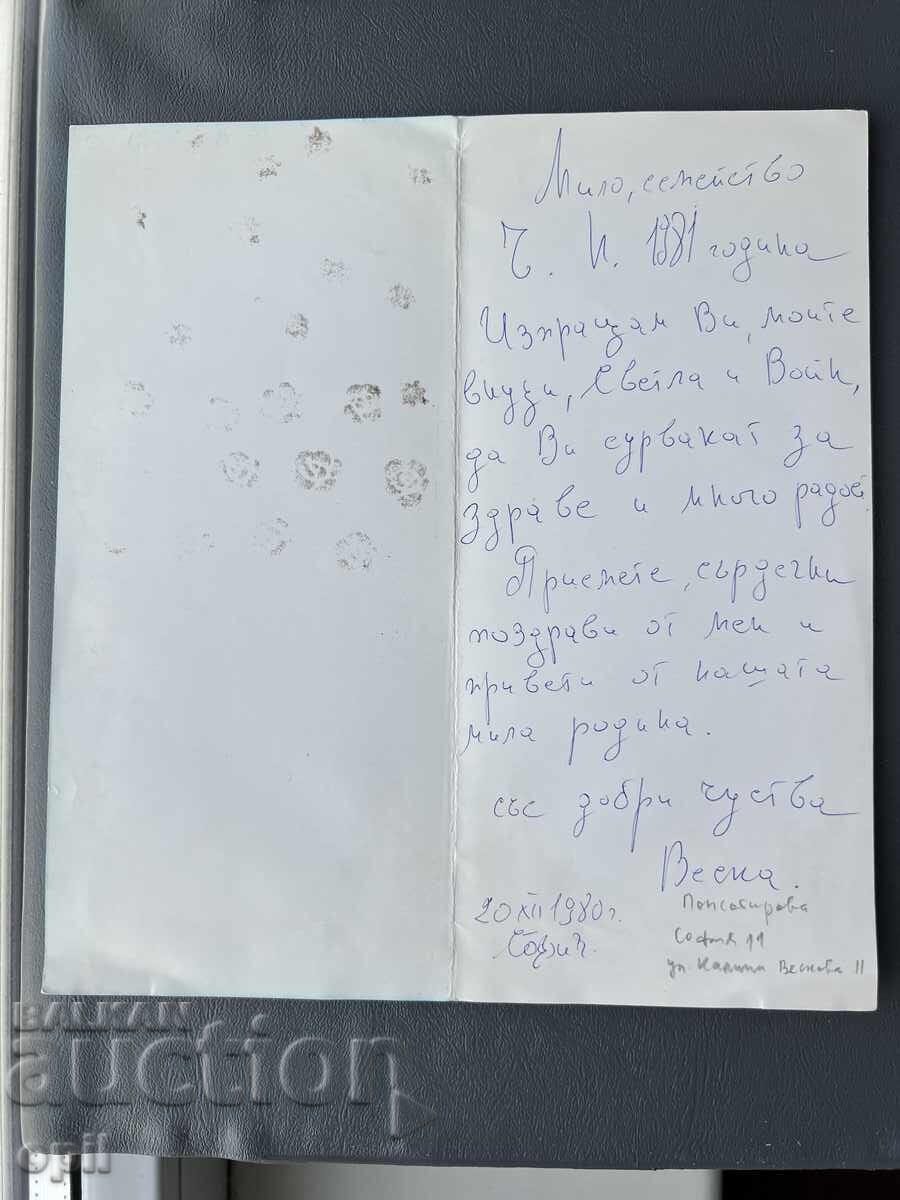 Мило, семейство
Ч. Н. 1981 година
Изпращам Ви, моите
внуци, Светла и
да Ви сурвакат за
здраве и много радост
Приемете, сърдечни
поздрави от мен и
привети от нашата
мила родина.
със добри чуства
Весна.
20 XII 1980 г.
София.
София 11
ул.
BALKAN
auction
opil